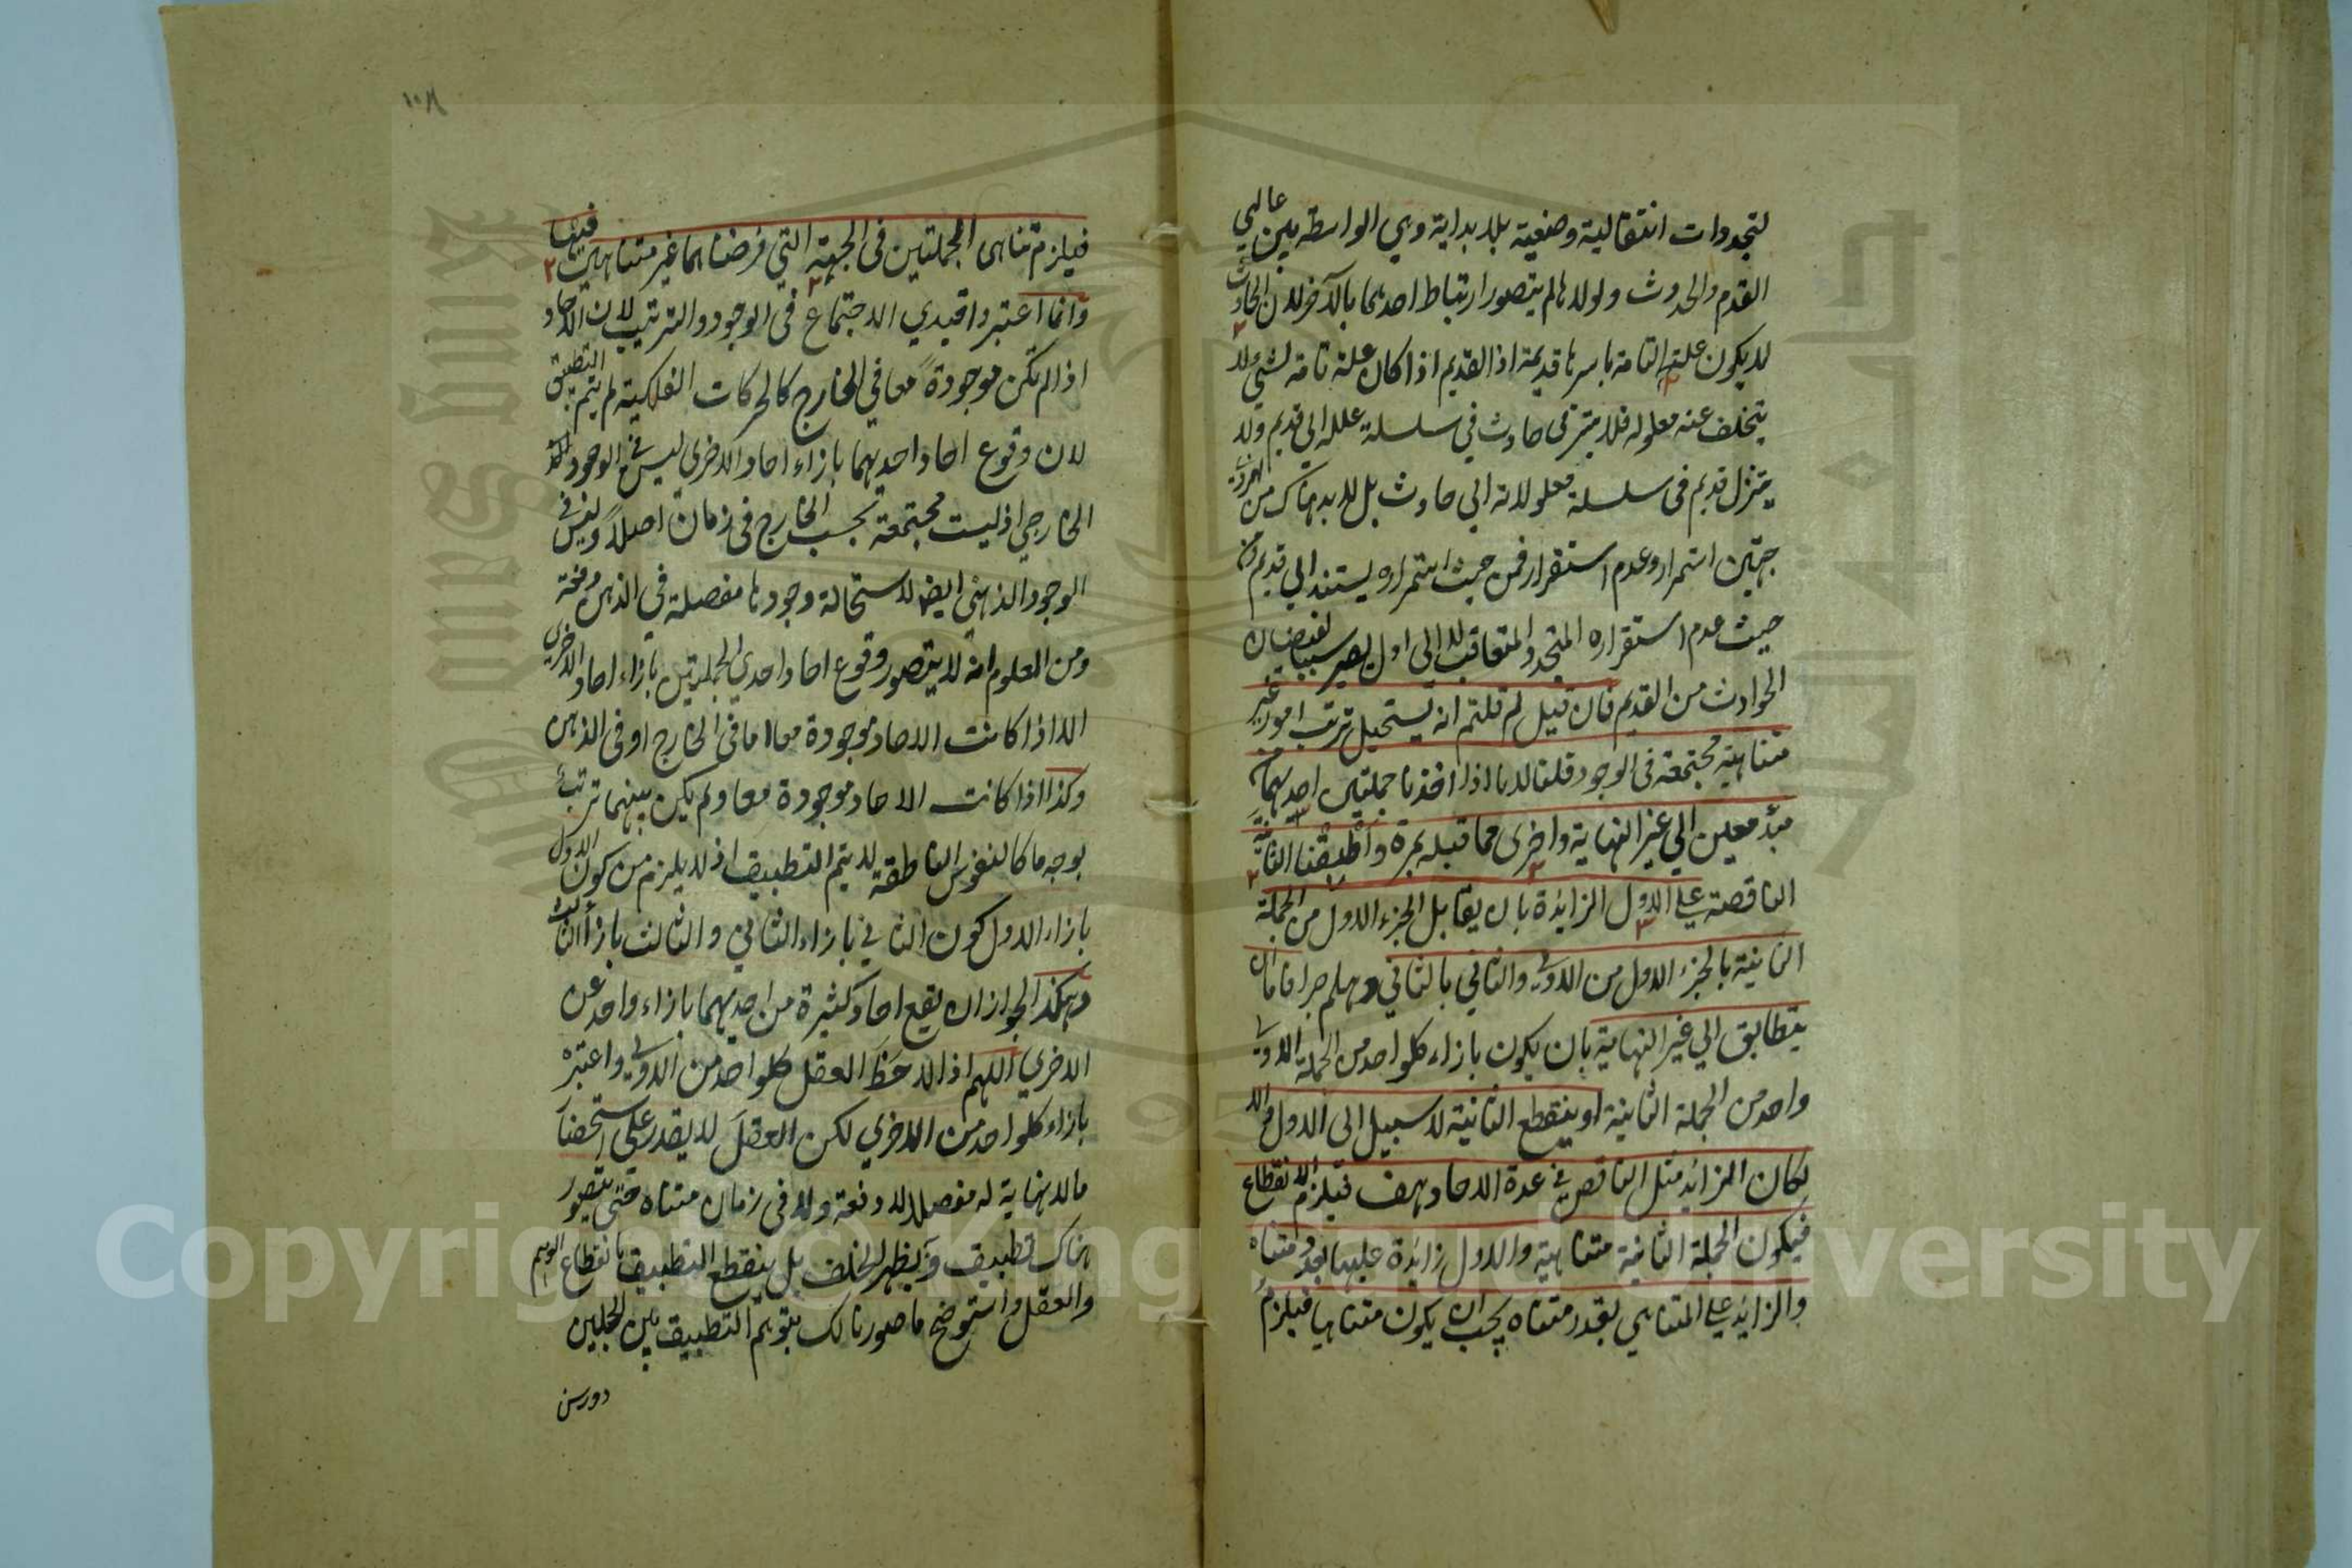 لتجددات انتقالية وضعية بلا بداية وهي الواسطة بين عالمي
القدم والحدوث ولولاها لم يتصور ارتباط احدهما بالآخر لان الحادث
لا يكون علته التامة باسرها قديمة اذ القديم اذا كان علة تامة لشئ لا
يتخلف عنه معلوله فلا يترقى حادث في سلسلة علله الى قديم ولا
يتنزل قديم فى سلسلة معلولاته الي حادث بل لا بد هناك من
جهتين استمرار وعدم استقرار فمن حيث استمراره يستند الي قديم ومن
حيث عدم استقراره المتجدد المتعاقب لا الى اول يصير سببا لفيضان
الحوادث من القديم فان قيل لم قلتم انه يستحيل ترتب امور غير
متناهية مجتمعة في الوجود قلنا لانا اذا اخذنا جملتين احديهما من
مبدء معين الي غير النهاية واخرى مما قبله بمرة واطبقنا الثانية
الناقصة علي الاول الزائدة بان يقابل الجزء الاول من الجملة
الثانية بالجزء الاول من الاولي والثاني بالثاني وهلم جرا فاما ان
يتطابق الي غير النهاية بان يكون بازاء كلواحد من الجملة الاولي
واحد من الجملة الثانية او ينقطع الثانية لا سبيل الى الاول والا
لكان الزائد مثل الناقص في عدة الاحاد هف فيلزم الانقطاع
فيكون الجملة الثانية متناهية والاول زائدة عليها بعدد متناه
والزائد علي المتناهي بقدر متناه يجب ان يكون متناهيا فيلزم
١٠٨
فيلزم تناهى الجملتين فى الجهة التي فرضناهما غير متناهيين فيها
وانما اعتبروا قيدي الاجتماع في الوجود والترتيب لان الاحاد
اذا لم تكن موجودة معا في الخارج كالحركات الفلكية لم يتم التطبيق
لان وقوع احاد احديهما بازاء احاد الاخرى ليس في الوجود
الخارجي اذ ليست مجتمعة بحسب الخارج فى زمان اصلا وليس في
الوجود الذهني ايضا لاستحالة وجودها مفصلة في الذهن دفعة
ومن المعلوم انه لا يتصور وقوع احاد احدي الجملتين بازاء احاد الاخرى
الا اذا كانت الاحاد موجودة معا اما في الخارج او في الذهن
وكذا اذا كانت الاحاد موجودة معا ولم يكن بينهما ترتب
بوجه ما كالنفوس الناطقة لا يتم التطبيق اذ لا يلزم من كون الاول
بازاء الاول كون الثاني بازاء الثاني والثالث بازاء الثالث
وهكذا لجواز ان يقع احاد كثيرة من احديهما بازاء واحد من
الاخري اللهم اذا لاحظ العقل كلواحد من الاولي واعتبره
بازاء كلواحد من الاخري لكن العقل لا يقدر على استحضار
ما لا نهاية له مفصلا لا دفعة ولا في زمان متناه حتى يتصور
هناك تطبيق ويظهر الخلف بل ينقطع التطبيق بانقطاع الوهم
والعقل واستوضح ما صورناه لك بتوهم التطبيق بين الجبلين
Copyright © King Saud University
King Saud University